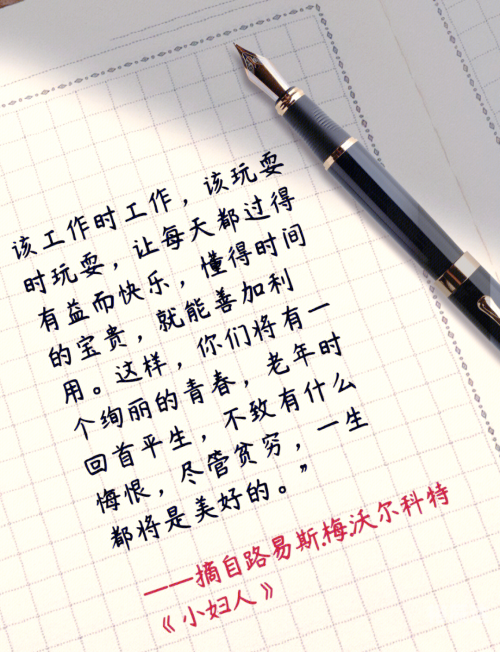 该工作时工作，该玩耍
时玩耍，让每天都过得
有益而快乐，懂得时间
的宝贵，就能善加利
用。这样，你们将有一
个绚丽的青春，老年时
回首平生，不致有什么
悔恨，尽管贫穷，一生
都将是美好的。”
——摘自路易斯.梅.沃尔科特
《小妇人》